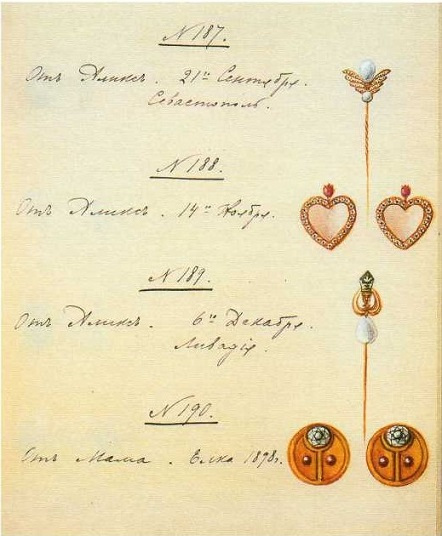 N 187.
Отъ Аликсъ. 21го Сентября.
Севастополь.
N 188.
Отъ Аликсъ. 14го Ноября.
N 189.
Отъ Аликсъ. 6го Декабря.
Ливадія.
N 190.
Отъ Мама. Елка 1898г.